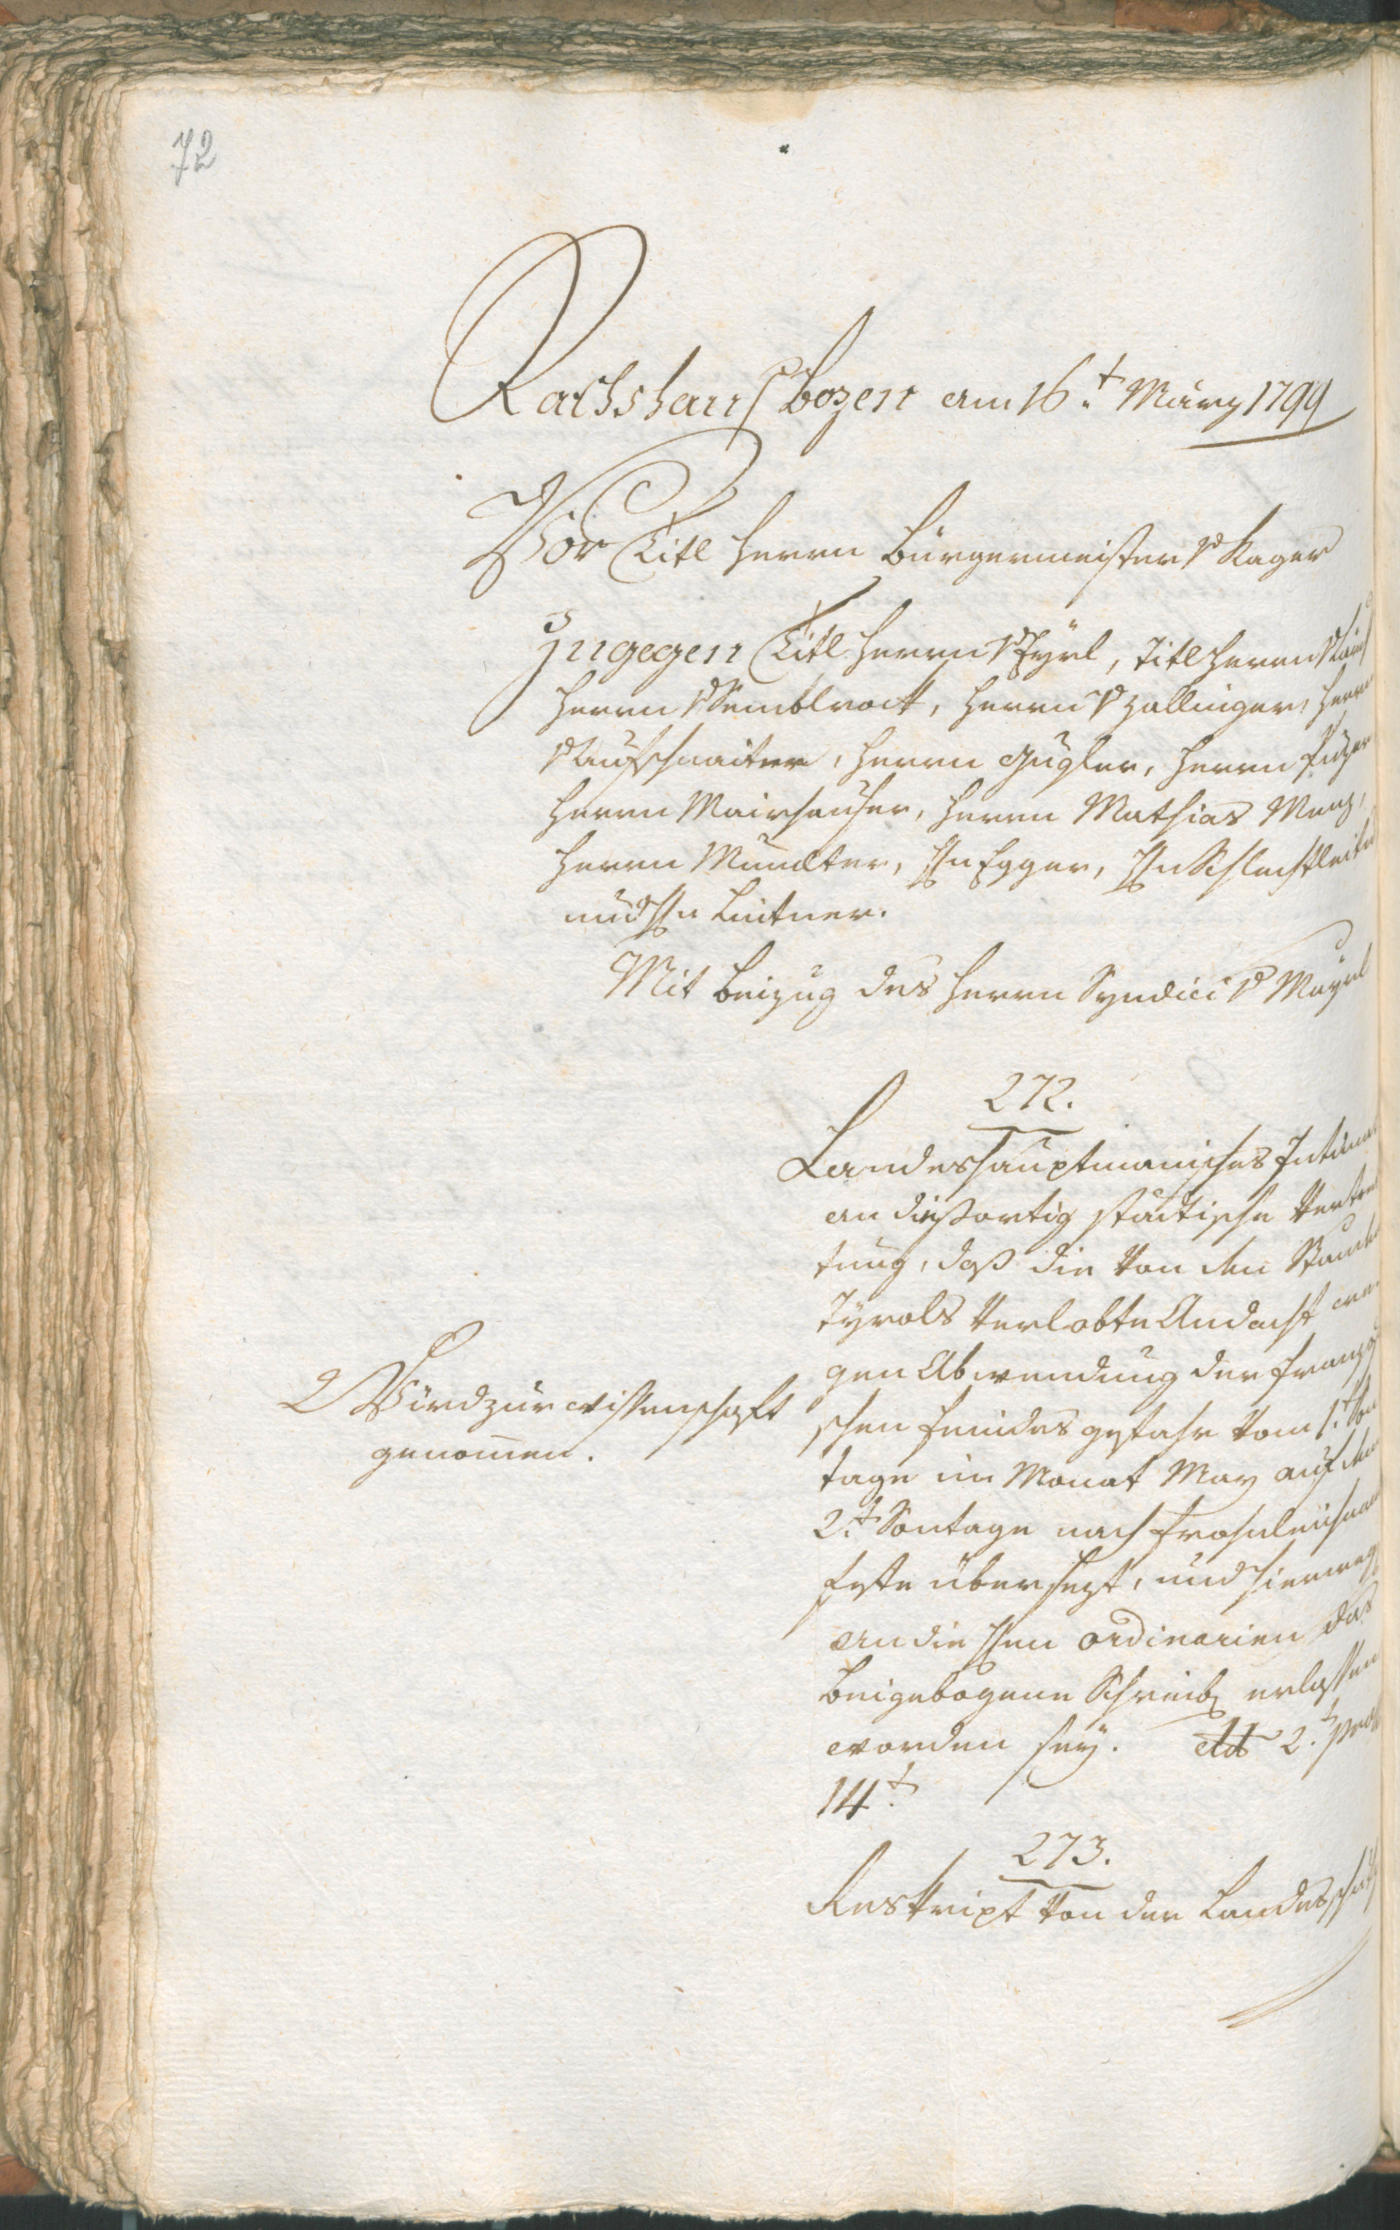 72
Rathshaus Bozen am 16.t März 1799
Vor Titl Herrn Bürgermeister v Kager
Ingegen Titl Herrn v Eyrl, Titl Herrn v
Herrn v Remblmark, Herrn v Zallinger, Herrn
v Aufschnaiter, Herrn Gugler, Herrn
Herrn Mairhauser, Herrn Mathias Menz,
Herrn Mumlter, Hn Egger, Hn Schlechtleit
und Hn Leitner.
Mit Beizug des Herrn Syndici v Mayrl
272.
Landeshauptmanisches Intima
an dießortig städtische Vertre
tung, daß die von den Stände
Tyrols verlobte Andacht we
gen Abwendung der französi
schen Feindes gefahr vom 1.t Son
tage im Monat May auf den
2.t Sontage nach Frohnleichnam
Feste übersezt, und hierweg
an die HHen Ordinarien das
beigebogene Schreib erlassen
worden sey. dd 2.t prs
14.t
Wird zur wissenschaft
genomen.
273.
Reskript von der Landesschutz